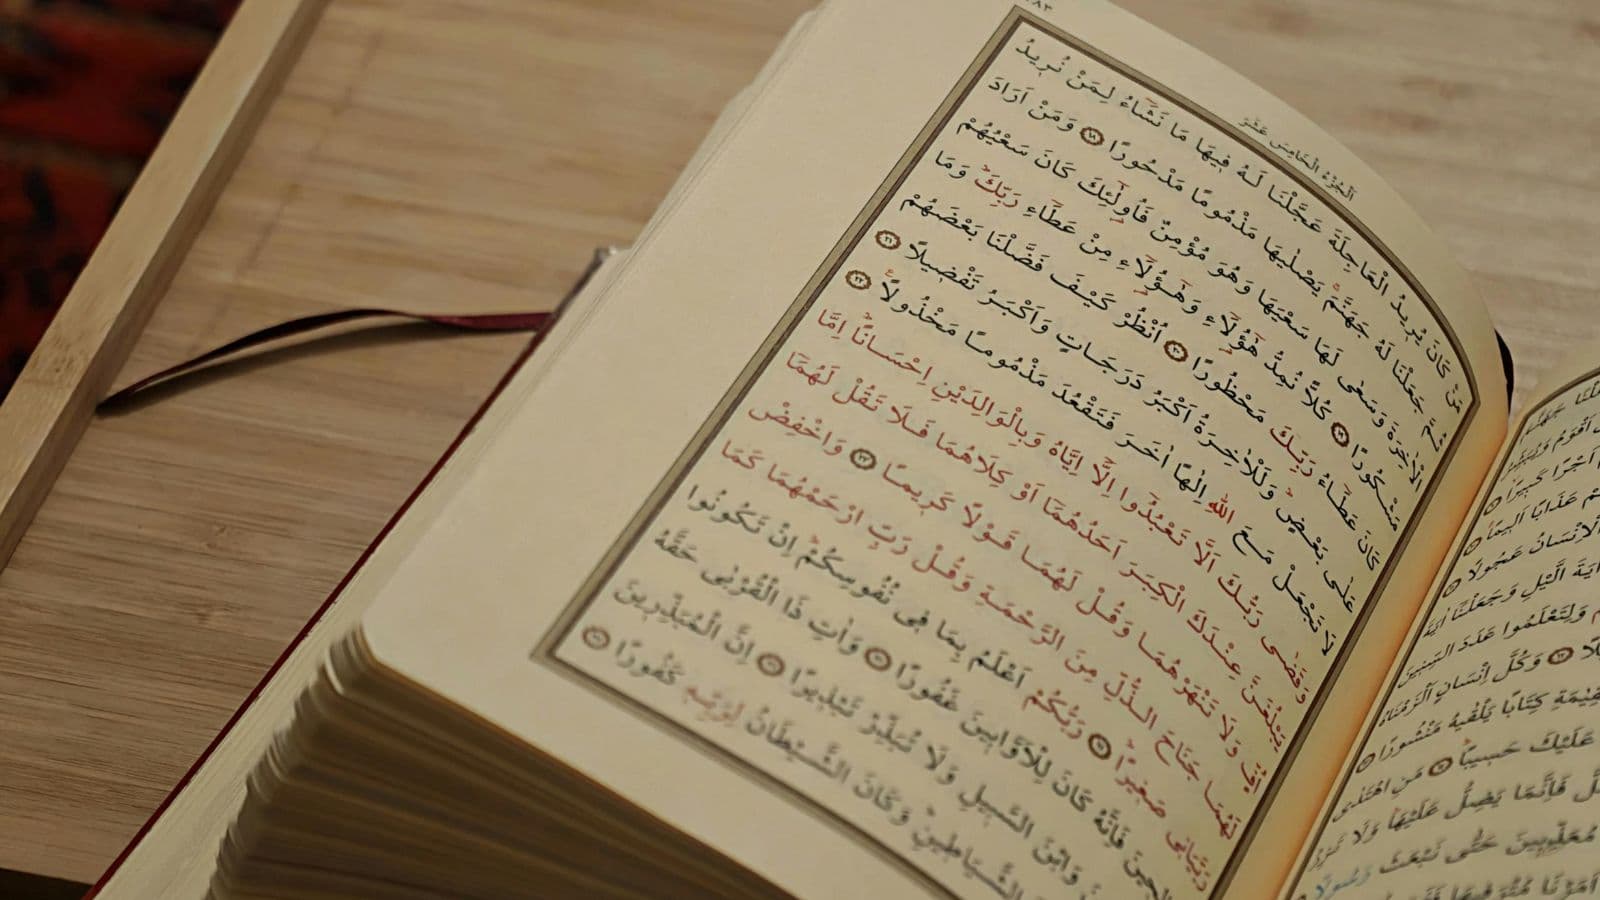 الجزء الخامس عشر
٢٨٣
مَنْ كَانَ يُرِيدُ الْعَاجِلَةَ عَجَّلْنَا لَهُ فِيهَا مَا نَشَٓاءُ لِمَنْ نُرِيدُ
ثُمَّ جَعَلْنَا لَهُ جَهَنَّمَۚ يَصْلٰيهَا مَذْمُومًا مَدْحُورًا ﴿١٨﴾ وَمَنْ اَرَادَ
الْاٰخِرَةَ وَسَعٰى لَهَا سَعْيَهَا وَهُوَ مُؤْمِنٌ فَاُو۬لٰٓئِكَ كَانَ سَعْيُهُمْ
مَشْكُورًا ﴿١٩﴾ كُلًّا نُمِدُّ هٰٓؤُ۬لَٓاءِ وَهٰٓؤُ۬لَٓاءِ مِنْ عَطَٓاءِ رَبِّكَۜ وَمَا
كَانَ عَطَٓاءُ رَبِّكَ مَحْظُورًا ﴿٢٠﴾ اُنْظُرْ كَيْفَ فَضَّلْنَا بَعْضَهُمْ
عَلٰى بَعْضٍۜ وَلَلْاٰخِرَةُ اَكْبَرُ دَرَجَاتٍ وَاَكْبَرُ تَفْضِيلًا ﴿٢١﴾
لَا تَجْعَلْ مَعَ اللّٰهِ اِلٰهًا اٰخَرَ فَتَقْعُدَ مَذْمُومًا مَخْذُولًا۟ ﴿٢٢﴾
وَقَضٰى رَبُّكَ اَلَّا تَعْبُدُٓوا اِلَّٓا اِيَّاهُ وَبِالْوَالِدَيْنِ اِحْسَانًاۜ اِمَّا
يَبْلُغَنَّ عِنْدَكَ الْكِبَرَ اَحَدُهُمَٓا اَوْ كِلَاهُمَا فَلَا تَقُلْ لَهُمَٓا
اُفٍّ وَلَا تَنْهَرْهُمَا وَقُلْ لَهُمَا قَوْلًا كَرِيمًا ﴿٢٣﴾ وَاخْفِضْ
لَهُمَا جَنَاحَ الذُّلِّ مِنَ الرَّحْمَةِ وَقُلْ رَبِّ ارْحَمْهُمَا كَمَا
رَبَّيَانِي صَغِيرًاۜ ﴿٢٤﴾ رَبُّكُمْ اَعْلَمُ بِمَا فِي نُفُوسِكُمْۜ اِنْ تَكُونُوا
صَالِحِينَ فَاِنَّهُ كَانَ لِلْاَوَّابِينَ غَفُورًا ﴿٢٥﴾ وَاٰتِ ذَا الْقُرْبٰى حَقَّهُ
وَابْنَ السَّبِيلِ وَلَا تُبَذِّرْ تَبْذِيرًا ﴿٢٦﴾ اِنَّ الْمُبَذِّرِينَ
الشَّيَاطِينِۜ وَكَانَ الشَّيْطَانُ لِرَبِّهِ كَفُورًا ﴿٢٧﴾
اَجْرًا كَبِيرًا
عَذَابًا اَلِيمًا
الْاِنْسَانُ عَجُولًا
اٰيَةَ الَّيْلِ وَجَعَلْنَٓا اٰيَةَ
وَلِتَعْلَمُوا عَدَدَ السِّنِينَ
وَكُلَّ اِنْسَانٍ اَلْزَمْنَاهُ
كِتَابًا يَلْقٰيهُ مَنْشُورًا
عَلَيْكَ حَسِيبًا مَنِ اهْتَدٰى
فَاِنَّمَا يَضِلُّ عَلَيْهَا وَلَا تَزِرُ
مُعَذِّبِينَ حَتّٰى نَبْعَثَ رَسُولًا
اَمَرْنَا مُتْرَفِيهَا